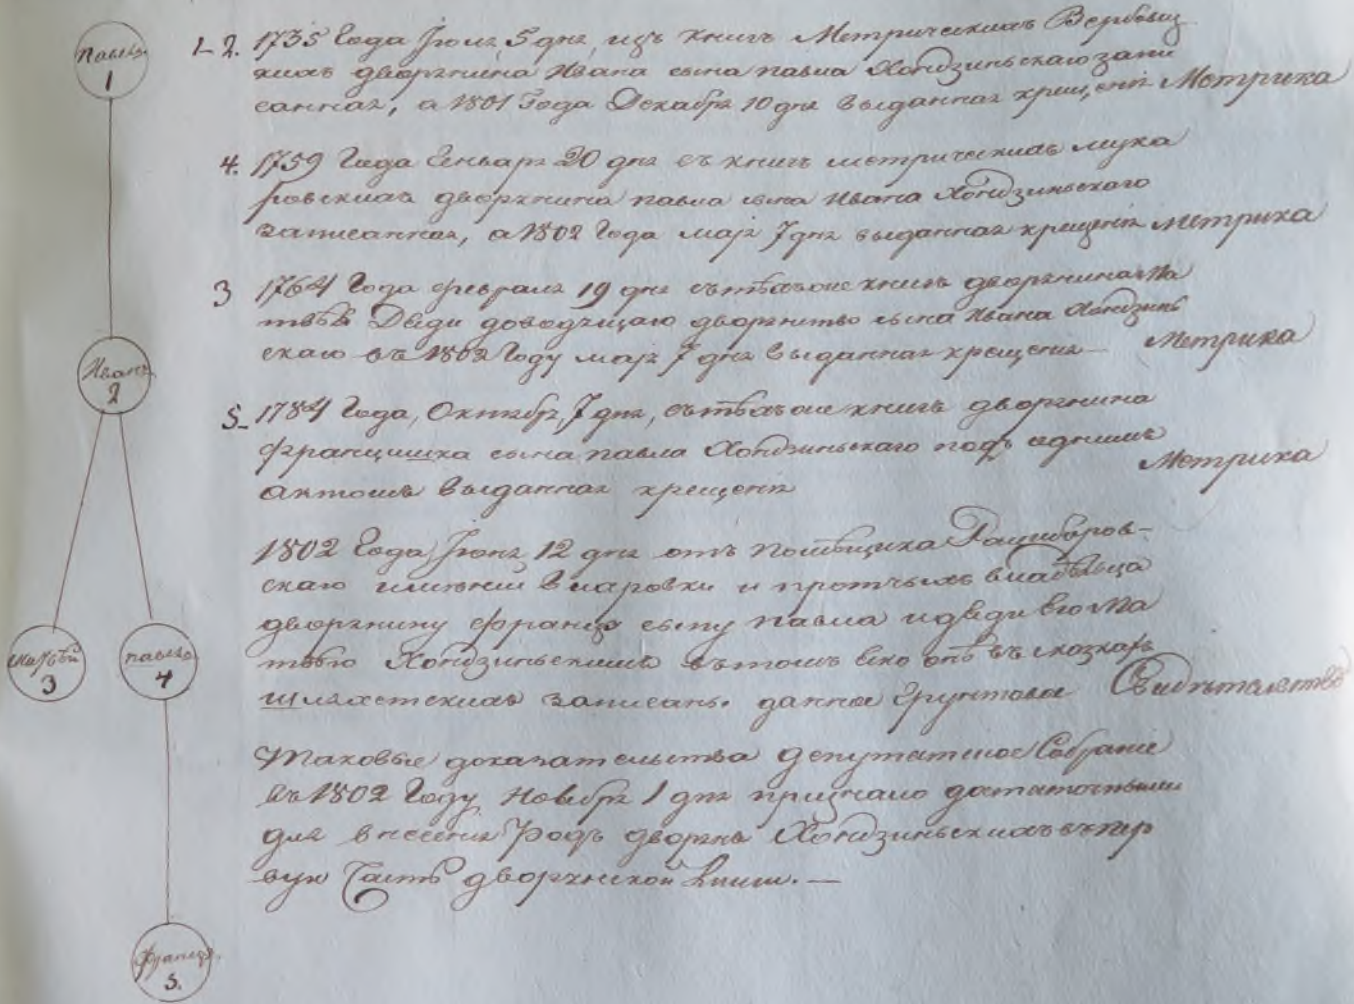 Павелъ
1
1-2. 1735 Года Іюля 5 дня, изъ книгъ Метрическихъ Вербовец
кихъ дворянина Ивана сына павла Хондзиньскаго запи
санная, а 1801 Года Декабря 10 дня выданная крещенія Метрика
4. 1759 Года Генваря 20 дня съ книгъ метрическихъ мука
ровскихъ дворянина павла сына Ивана Хондзиньскаго
записанная, а 1802 Года маія 7 дня выданная крещенія Метрика
3 1764 Года февраля 19 дня съ тѣхъже книгъ дворянина Ма
твѣя Дяди доводящаго дворянство сына Ивана Хондзинь
скаго въ 1802 Году маія 7 дня выданная крещенія Метрика
Иванъ
2
5 1784 Года, Октября 7 дня, съ тѣхъже книгъ дворянина
францишка сына павла Хондзиньскаго подъ однимъ
актомъ выданная крещенія Метрика
1802 Года Іюня 12 дня отъ помѣщика
скаго имѣній и протчыхъ владѣльца
дворянину францу сыну павла и дяди Его Ма
твѣю Хондзиньскимъ въ томъ что онѣ въ сказкахъ
шляхетскихъ записаны. данное Грунтовое Свидѣтельство
матвѣй
3
павелъ
4
Таковые доказательства депутатское Собраніе
въ 1802 Году Ноября 1 дня признало достаточными
для внесенія Родъ дворянъ Хондзиньскихъ въ пер
вую Часть дворянской Книги. —
францъ
5.